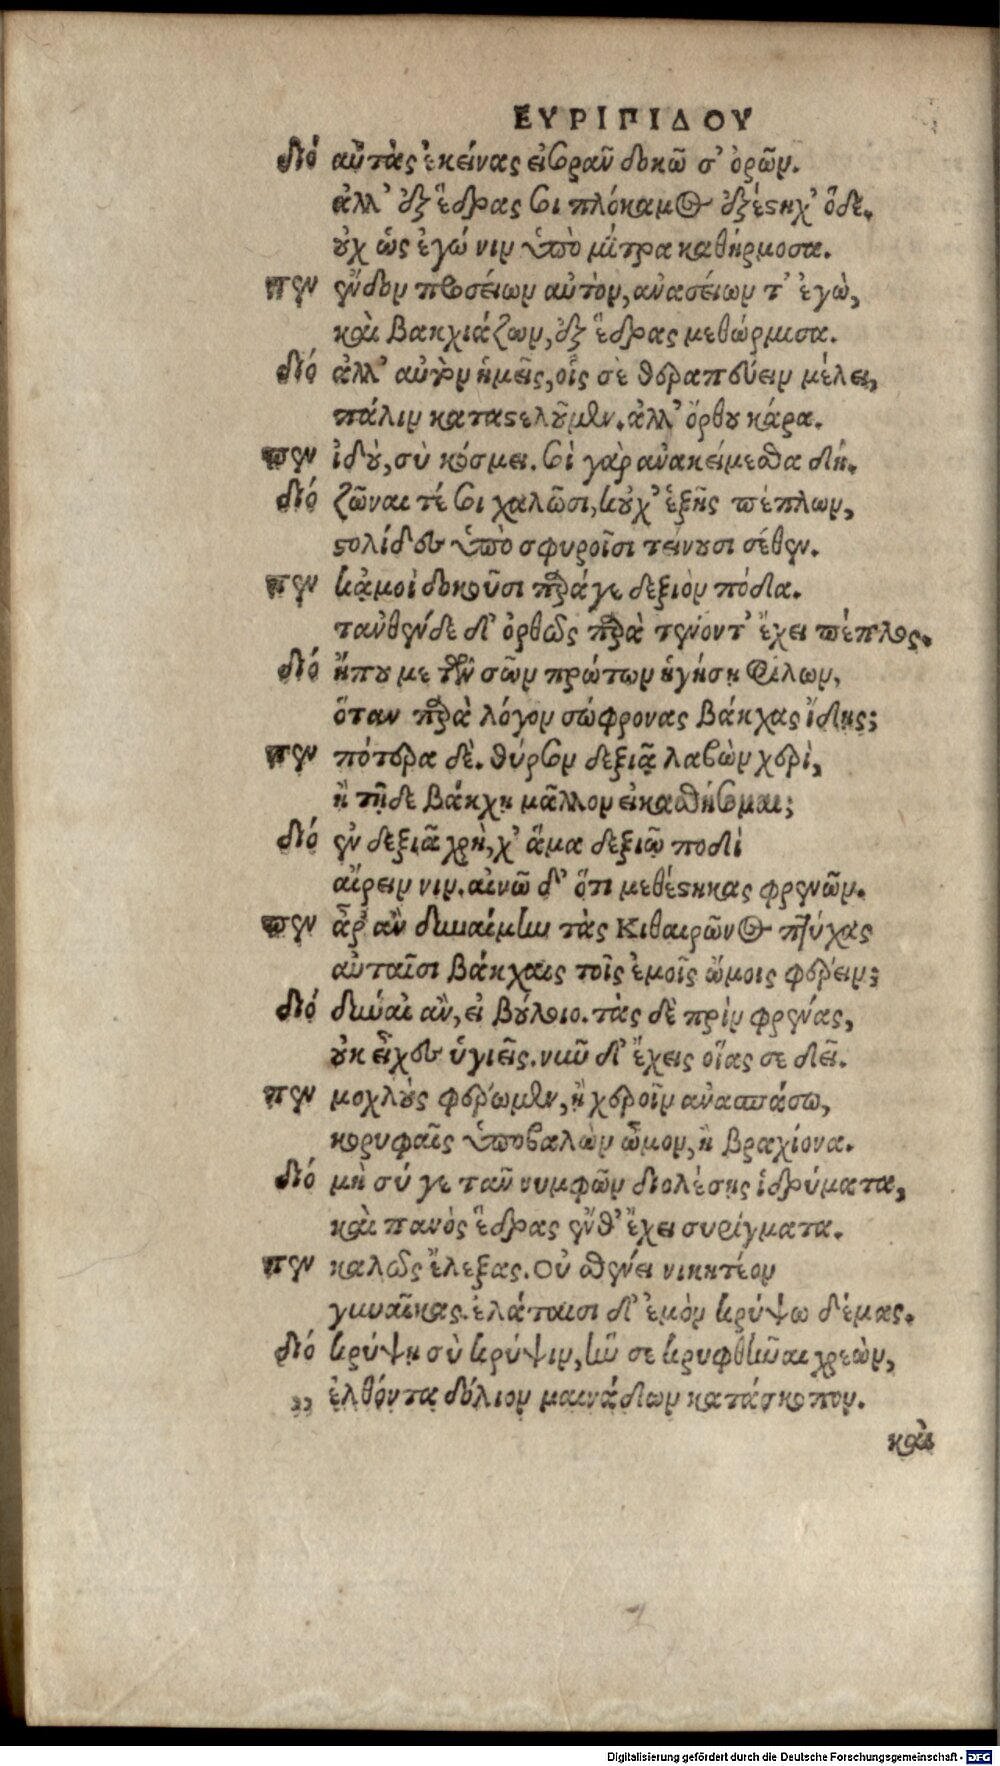 ΕΥΡΙΠΙΔΟΥ
διό αὐτὰς ἐκείνας εἰσορᾶν δοκῶ σ' ὁρῶν.
ἀλλ' ἐξ ἕδρας σοι πλόκαμος ἐξέστηχ' ὅδε.
οὐχ ὡς ἐγώ νιν ὑπὸ μίτρα καθήρμοσα.
πεν ἔνδον προσείων αὐτὸν, ἀνασείων τ' ἐγὼ,
καὶ βακχιάζων, ἐξ ἕδρας μεθώρμισα.
διό ἀλλ' αὐτὸν ἡμεῖς, οἷς σὲ θεραπεύειν μέλει,
πάλιν καταστελοῦμεν. ἀλλ' ὄρθου κάρα.
πεν ἰδοὺ, σὺ κόσμει. σοὶ γὰρ ἀνακείμεσθα δή.
διό ζῶναί τέ σοι χαλῶσι, κοὐχ' ἑξῆς πέπλων,
στολίδες ὑπὸ σφυροῖσι τείνουσι σέθεν.
πεν κἀμοὶ δοκοῦσι παρά γε δεξιὸν πόδα.
τἀνθένδε δ' ὀρθῶς παρὰ τένοντ' ἔχει πέπλος.
διό ἤπου με τῶν σῶν πρώτων ἡγήσῃ φίλων,
ὅταν παρὰ λόγον σώφρονας βάκχας ἴδῃς;
πεν πότερα δὲ. θύρσον δεξιᾷ λαβὼν χερὶ,
ἢ τῇδε βάκχῃ μᾶλλον εἰκασθήσομαι;
διό ἐν δεξιᾷ χρὴ, χ' ἅμα δεξιῷ ποδὶ
αἴρειν νιν. αἰνῶ δ' ὅτι μεθέστηκας φρενῶν.
πεν ἆρ' ἂν δυναίμην τὰς Κιθαιρῶνος πτύχας
αὐταῖσι βάκχαις τοῖς ἐμοῖς ὤμοις φέρειν;
διό δύναι' ἂν, εἰ βούλοιο. τὰς δὲ πρὶν φρένας,
οὐκ εἶχες ὑγιεῖς. νῦν δ' ἔχεις οἵας σε δεῖ.
πεν μοχλοὺς φέρωμεν, ἢ χεροῖν ἀνασπάσω,
κορυφαῖς ὑποβαλὼν ὦμον, ἢ βραχίονα.
διό μὴ σύ γε τᾶν νυμφῶν διολέσῃς ἱδρύματα,
καὶ πανὸς ἕδρας ἔνθ' ἔχει συρίγματα.
πεν καλῶς ἔλεξας. Οὐ σθένει νικητέον
γυναῖκας. ἐλάταισι δ' ἐμὸν κρύψω δέμας.
διό κρύψῃ σὺ κρύψιν, ἥν σε κρυφθῆναι χρεὼν,
,, ἐλθόντα δόλιον μαινάδων κατάσκοπον.
καὶ
Digitalisierung gefördert durch die Deutsche Forschungsgemeinschaft - DFG